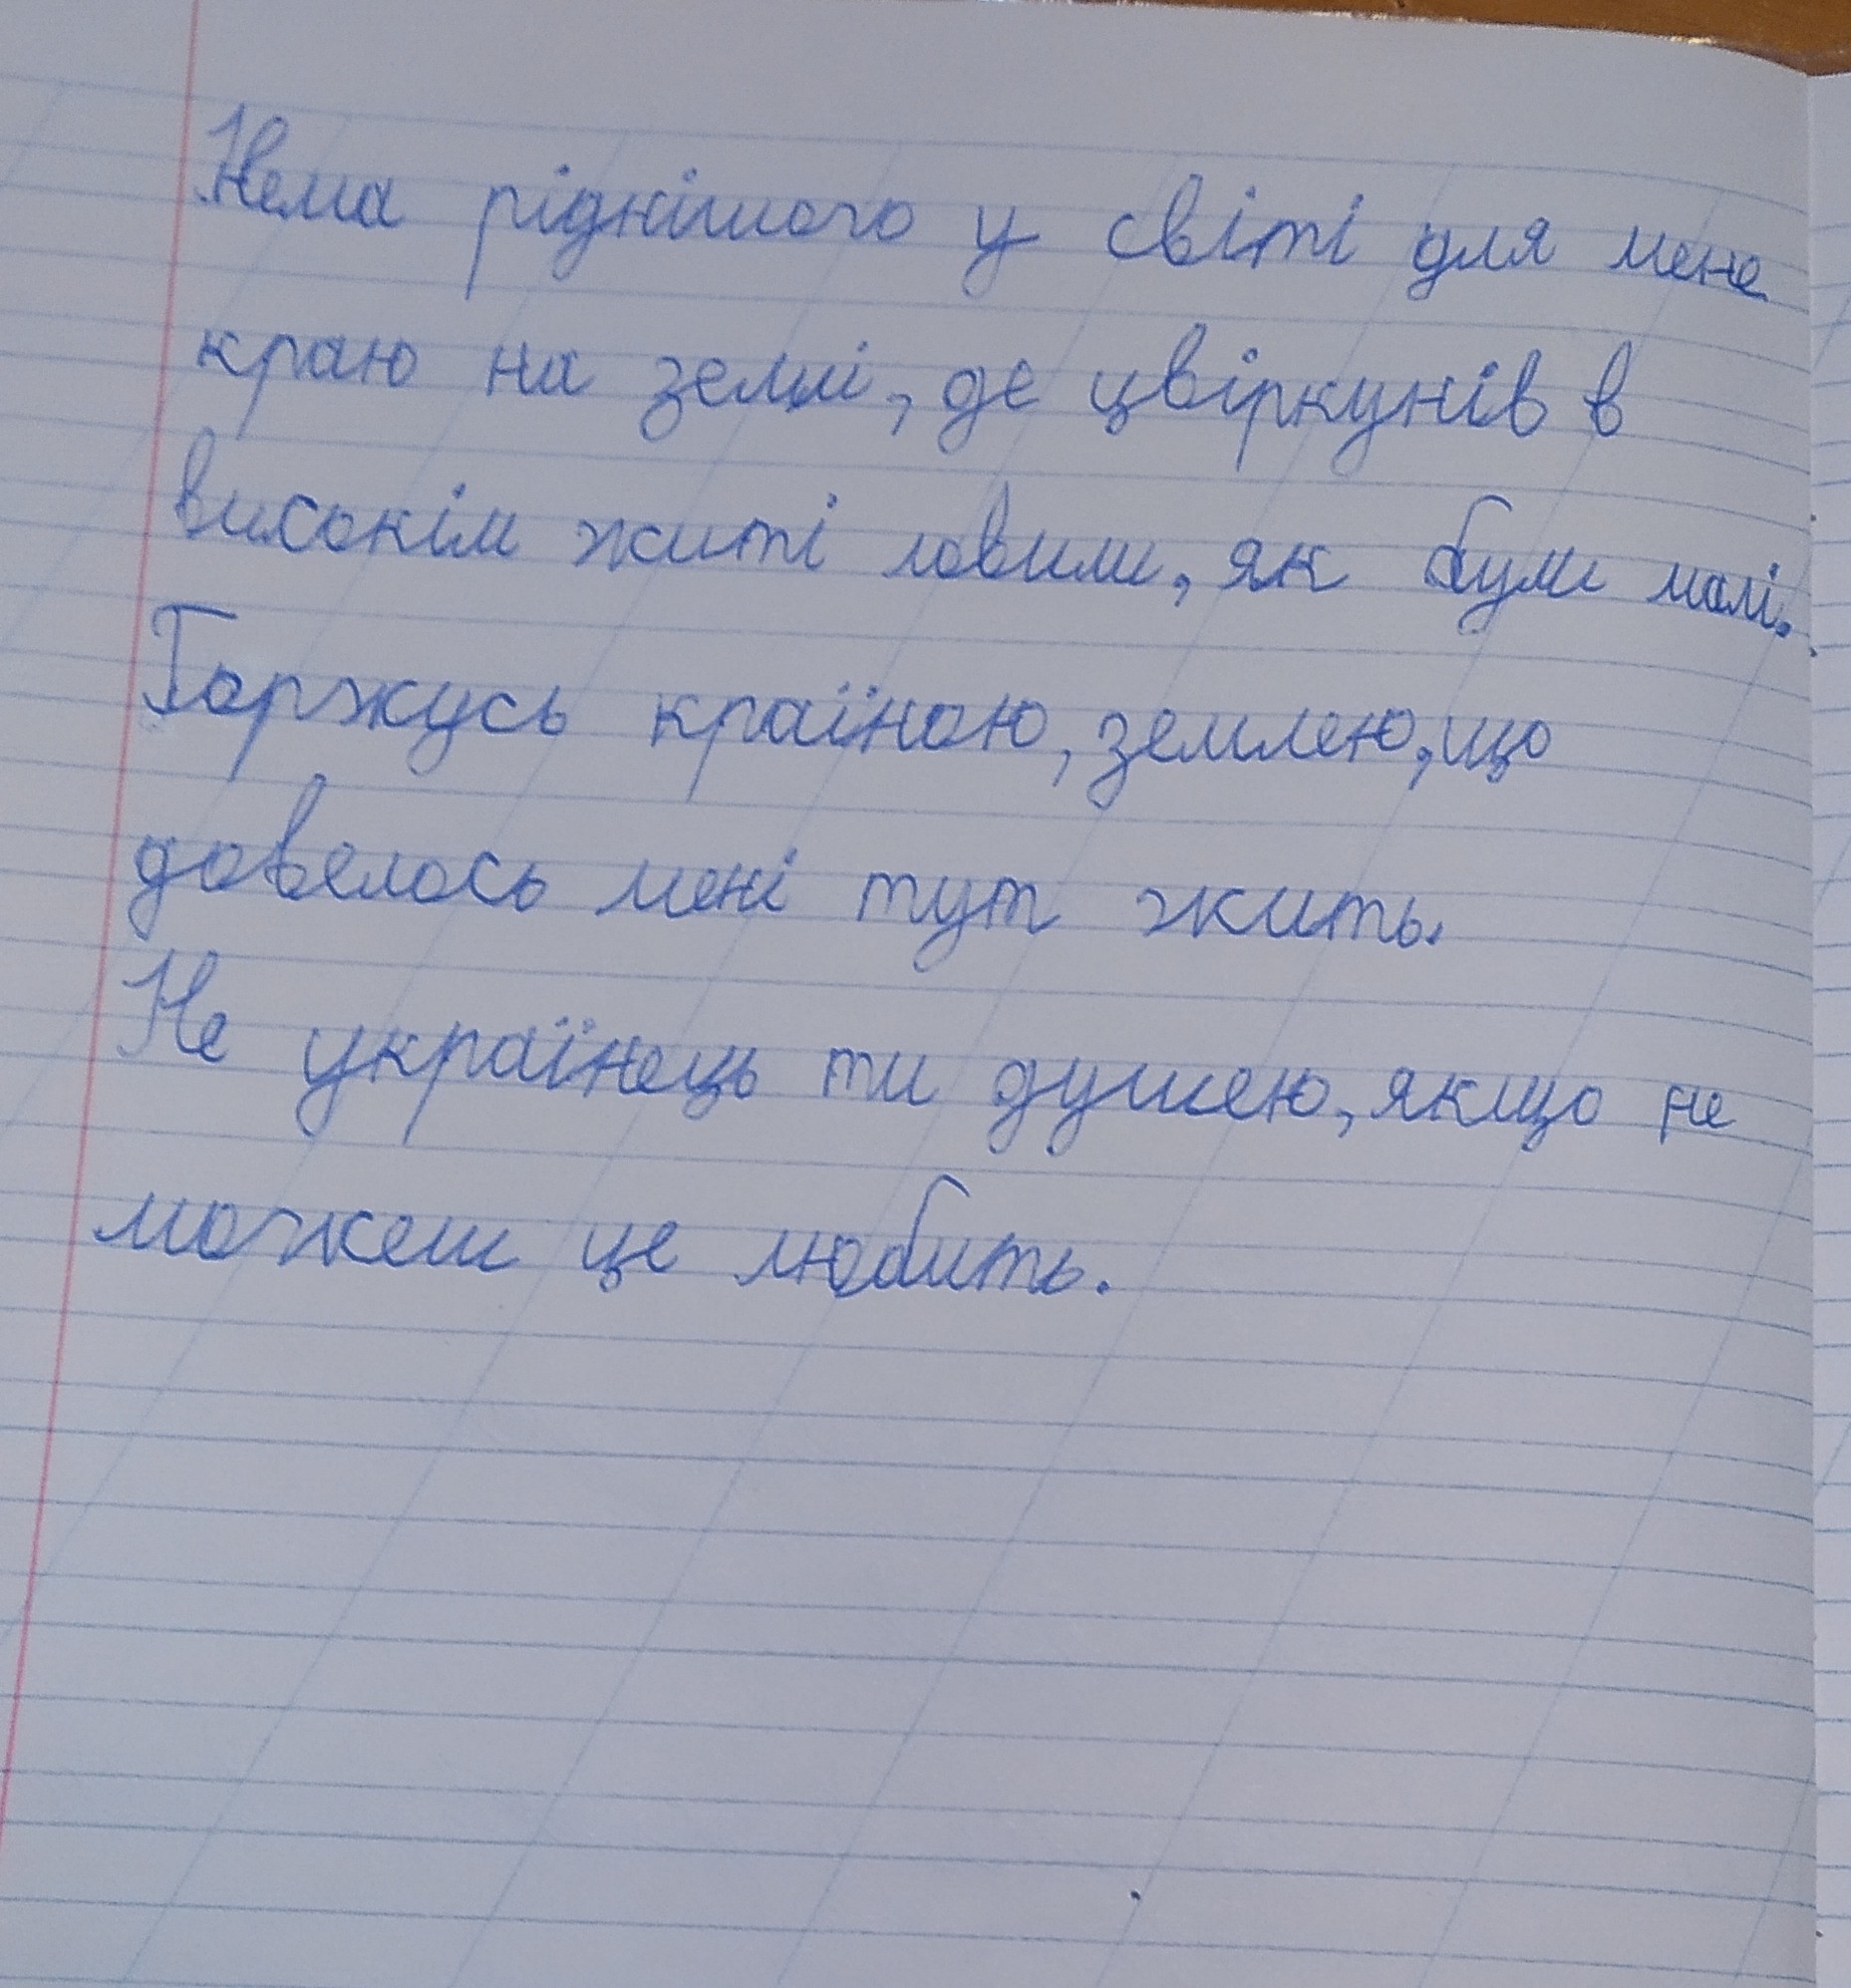 Нема ріднішого у світі для мене
краю на землі, де цвіркунів в
високім житі ловили, як були малі.
Горжусь країною, землею, що
довелось мені тут жить.
Не українець ти душею, якщо не
можеш це любить.